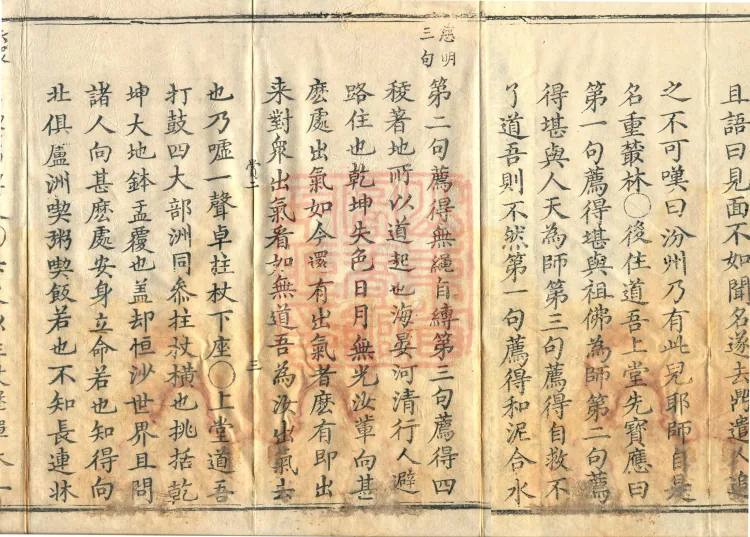 且語曰見面不如聞名遂去鼎遣人追
之不可嘆曰汾州乃有此兒耶師自是
名重叢林〇後住道吾上堂先寶應曰
第一句薦得堪與祖佛為師第二句薦
得堪與人天為師第三句薦得自救不
了道吾則不然第一句薦得和泥合水
慈明
三句
第二句薦得無繩自縛第三句薦得四
稜著地所以道起也海晏河清行人避
路住也乾坤失色日月無光汝輩向甚
麽處出氣如今還有出氣者麽有即出
来對衆出氣看如無道吾為汝出氣去
賞二
三
也乃噓一聲卓拄杖下座〇上堂道吾
打鼓四大部洲同參拄杖橫也挑括乾
坤大地鉢盂覆也盖却恒沙世界且問
諸人向甚麽處安身立命若也知得向
北俱盧洲喫粥喫飯若也不知長連牀